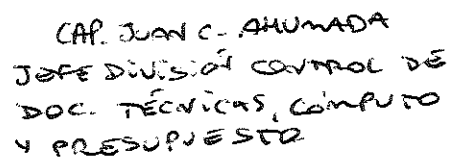 CAP. JUAN C. AHUMADA
JEFE DIVISIÓN CONTROL DE
DOC. TÉCNICAS, CÓMPUTO
Y PRESUPUESTO